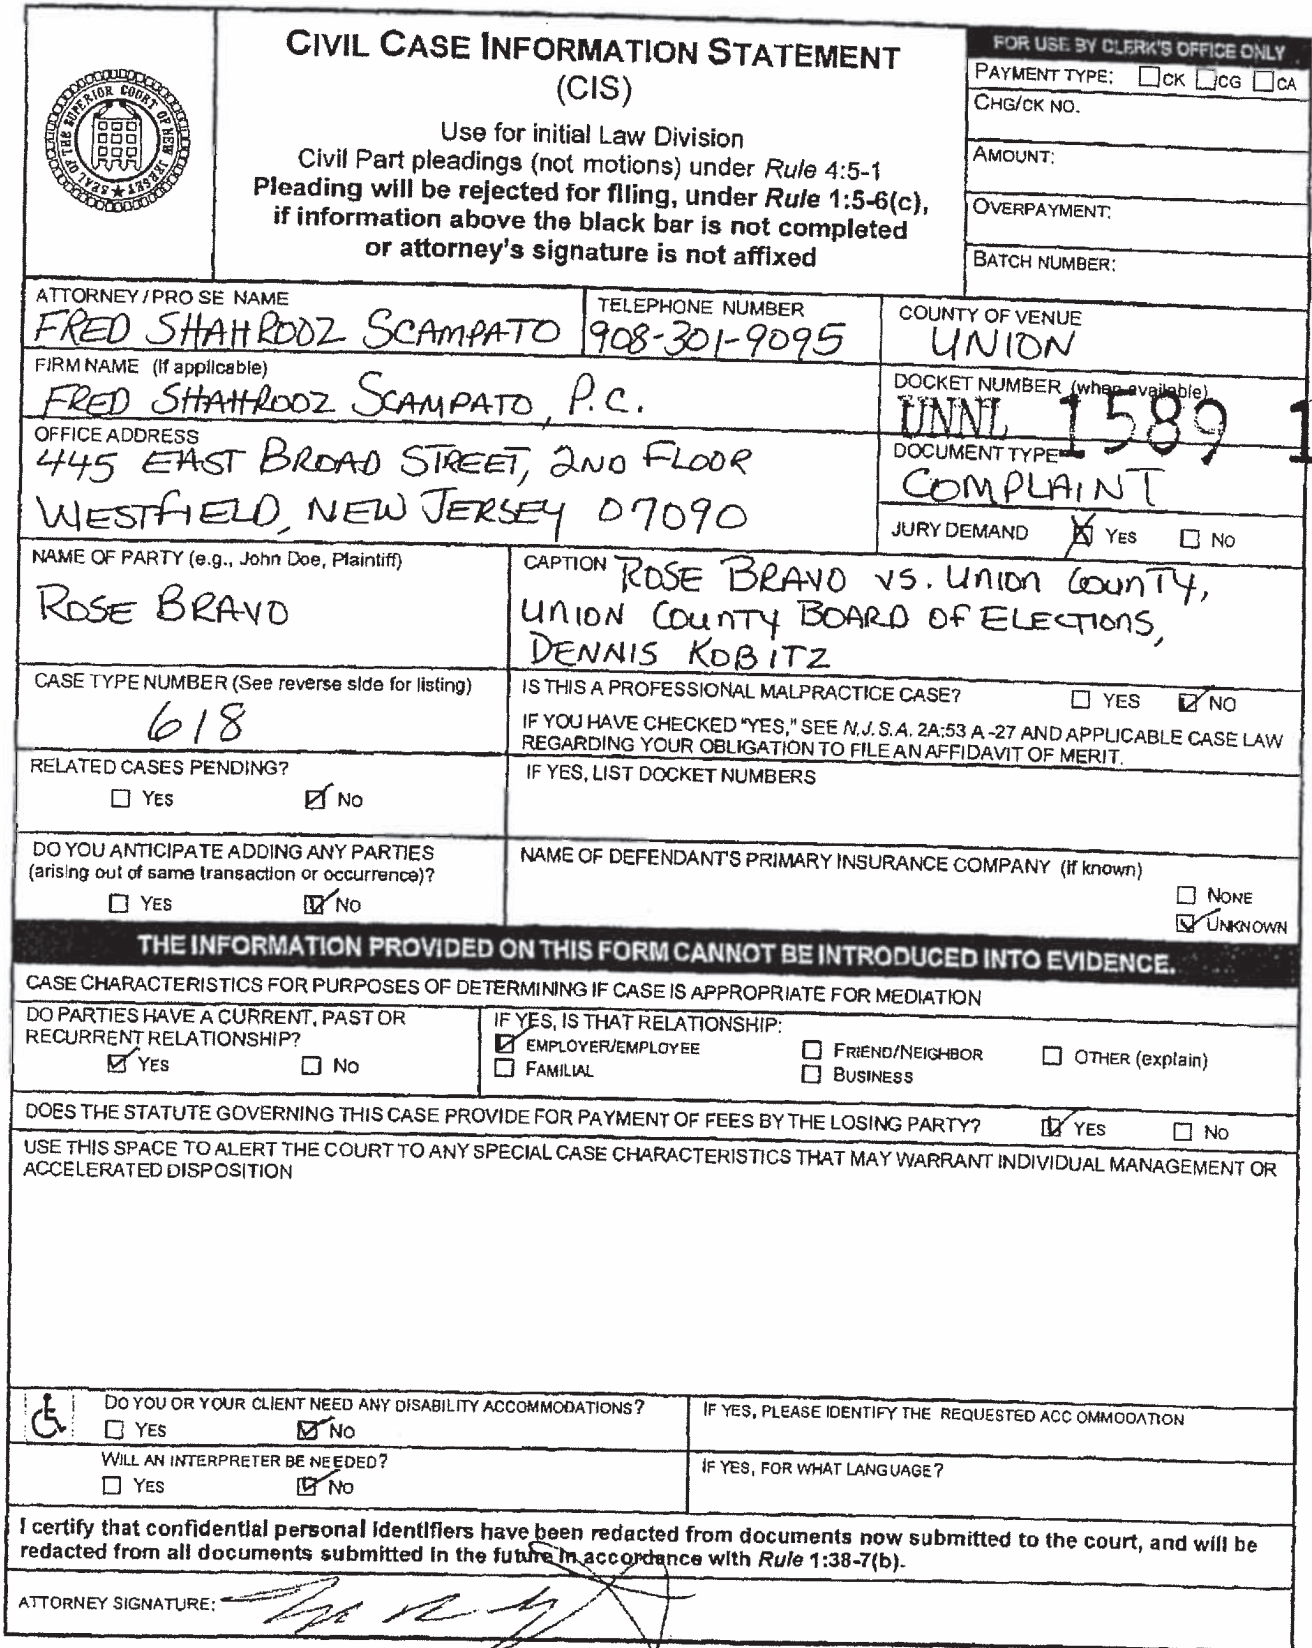 CIVIL CASE INFORMATION STATEMENT
(CIS)
Use for initial Law Division
Civil Part pleadings (not motions) under Rule 4:5-1
Pleading will be rejected for filing, under Rule 1:5-6(c),
if information above the black bar is not completed
or attorney's signature is not affixed
SEAL OF THE SUPERIOR COURT OF NEW JERSEY
FOR USE BY CLERK'S OFFICE ONLY
PAYMENT TYPE: CK CG CA
CHG/CK NO.
AMOUNT:
OVERPAYMENT:
BATCH NUMBER:
ATTORNEY / PRO SE NAME
FRED SHAHROOZ SCAMPATO
TELEPHONE NUMBER
908-301-9095
COUNTY OF VENUE
UNION
FIRM NAME (If applicable)
FRED SHAHROOZ SCAMPATO, P.C.
DOCKET NUMBER (when available)
UNNL 1589 1
OFFICE ADDRESS
445 EAST BROAD STREET, 2ND FLOOR
WESTFIELD, NEW JERSEY 07090
DOCUMENT TYPE
COMPLAINT
JURY DEMAND YES NO
NAME OF PARTY (e.g., John Doe, Plaintiff)
ROSE BRAVO
CAPTION ROSE BRAVO VS. UNION COUNTY,
UNION COUNTY BOARD OF ELECTIONS,
DENNIS KOBITZ
CASE TYPE NUMBER (See reverse side for listing)
618
IS THIS A PROFESSIONAL MALPRACTICE CASE? YES NO
IF YOU HAVE CHECKED "YES," SEE N.J.S.A. 2A:53 A -27 AND APPLICABLE CASE LAW
REGARDING YOUR OBLIGATION TO FILE AN AFFIDAVIT OF MERIT.
RELATED CASES PENDING?
YES NO
IF YES, LIST DOCKET NUMBERS
DO YOU ANTICIPATE ADDING ANY PARTIES
(arising out of same transaction or occurrence)?
YES NO
NAME OF DEFENDANT'S PRIMARY INSURANCE COMPANY (if known)
NONE
UNKNOWN
THE INFORMATION PROVIDED ON THIS FORM CANNOT BE INTRODUCED INTO EVIDENCE.
CASE CHARACTERISTICS FOR PURPOSES OF DETERMINING IF CASE IS APPROPRIATE FOR MEDIATION
DO PARTIES HAVE A CURRENT, PAST OR
RECURRENT RELATIONSHIP?
YES NO
IF YES, IS THAT RELATIONSHIP:
EMPLOYER/EMPLOYEE FRIEND/NEIGHBOR OTHER (explain)
FAMILIAL BUSINESS
DOES THE STATUTE GOVERNING THIS CASE PROVIDE FOR PAYMENT OF FEES BY THE LOSING PARTY? YES NO
USE THIS SPACE TO ALERT THE COURT TO ANY SPECIAL CASE CHARACTERISTICS THAT MAY WARRANT INDIVIDUAL MANAGEMENT OR
ACCELERATED DISPOSITION
DO YOU OR YOUR CLIENT NEED ANY DISABILITY ACCOMMODATIONS?
YES NO
IF YES, PLEASE IDENTIFY THE REQUESTED ACC OMMODATION
WILL AN INTERPRETER BE NEEDED?
YES NO
IF YES, FOR WHAT LANGUAGE?
I certify that confidential personal identifiers have been redacted from documents now submitted to the court, and will be
redacted from all documents submitted in the future in accordance with Rule 1:38-7(b).
ATTORNEY SIGNATURE: